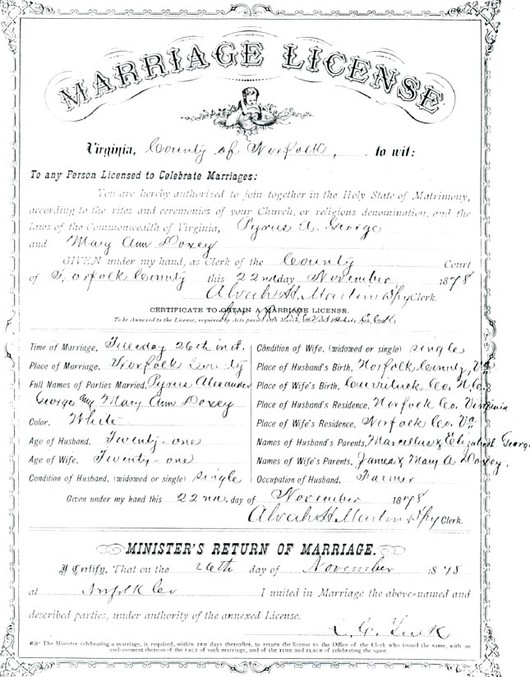 MARRIAGE LICENSE
Virginia, County of Norfolk, to wit:
To any Person Licensed to Celebrate Marriages:
You are hereby authorized to join together in the Holy State of Matrimony,
according to the rites and ceremonies of your Church, or religious denomination, and the
laws of the Commonwealth of Virginia, Pyrus A. George
and Mary Ann Doxey
GIVEN under my hand, as Clerk of the County Court
of Norfolk County this 22nd day November 1878
Alvah H. Martin Dpy Clerk.
CERTIFICATE TO OBTAIN A MARRIAGE LICENSE.
To be Annexed to the License, required by Acts passed
Time of Marriage, Tuesday 26th inst.
Place of Marriage, Norfolk County
Full Names of Parties Married, Pyrus Alexander
George and Mary Ann Doxey
Color, White
Age of Husband, Twenty-one
Age of Wife, Twenty-one
Condition of Husband, (widowed or single) Single
Condition of Wife, (widowed or single) Single
Place of Husband's Birth, Norfolk County, Va
Place of Wife's Birth, Currituck Co. N.C.
Place of Husband's Residence, Norfolk Co. Virginia
Place of Wife's Residence, Norfolk Co. Va
Names of Husband's Parents, Marcellus & Elizabeth George
Names of Wife's Parents, James & Mary A Doxey.
Occupation of Husband, Farmer
Given under my hand this 22nd day of November 1878
Alvah H. Martin Dpy Clerk.
MINISTER'S RETURN OF MARRIAGE.
I Certify, That on the 26th day of November 1878
at Norfolk Co I united in Marriage the above-named and
described parties, under authority of the annexed License.
The Minister celebrating a marriage, is required, within ten days thereafter, to return the license to the Office of the Clerk who issued the same, with an
endorsement thereon of the FACT of such marriage, and of the TIME and PLACE of celebrating the same.